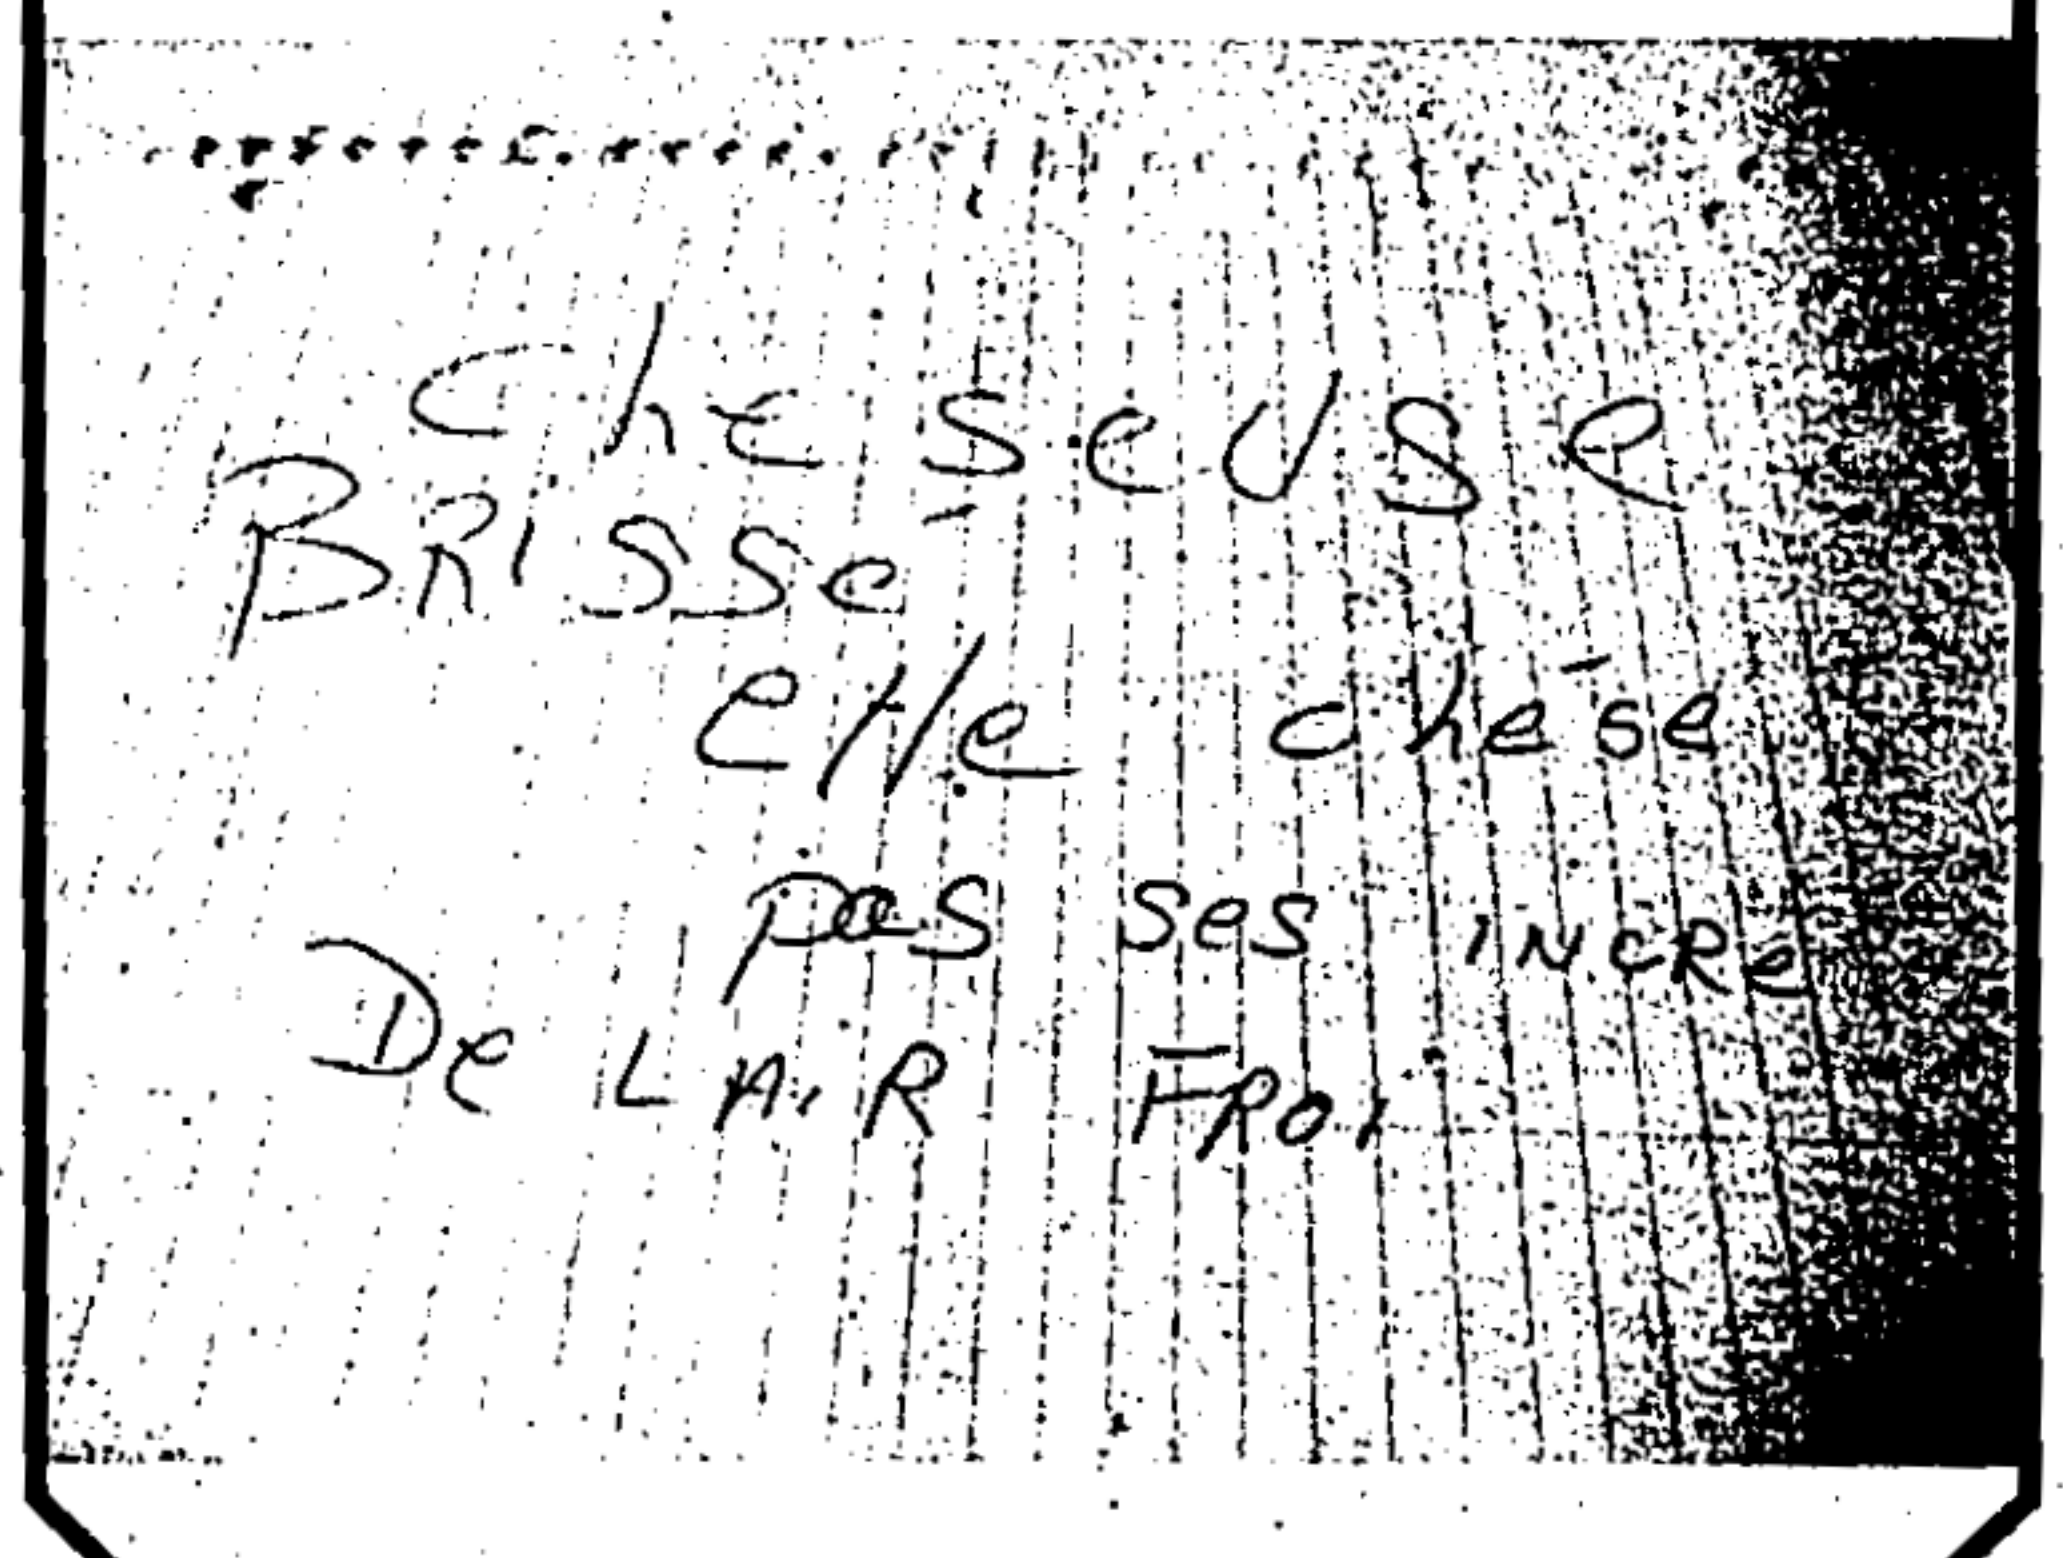 Cheseuse
BRISSé
elle chése
pas ses INCRe
De L AiR FROi